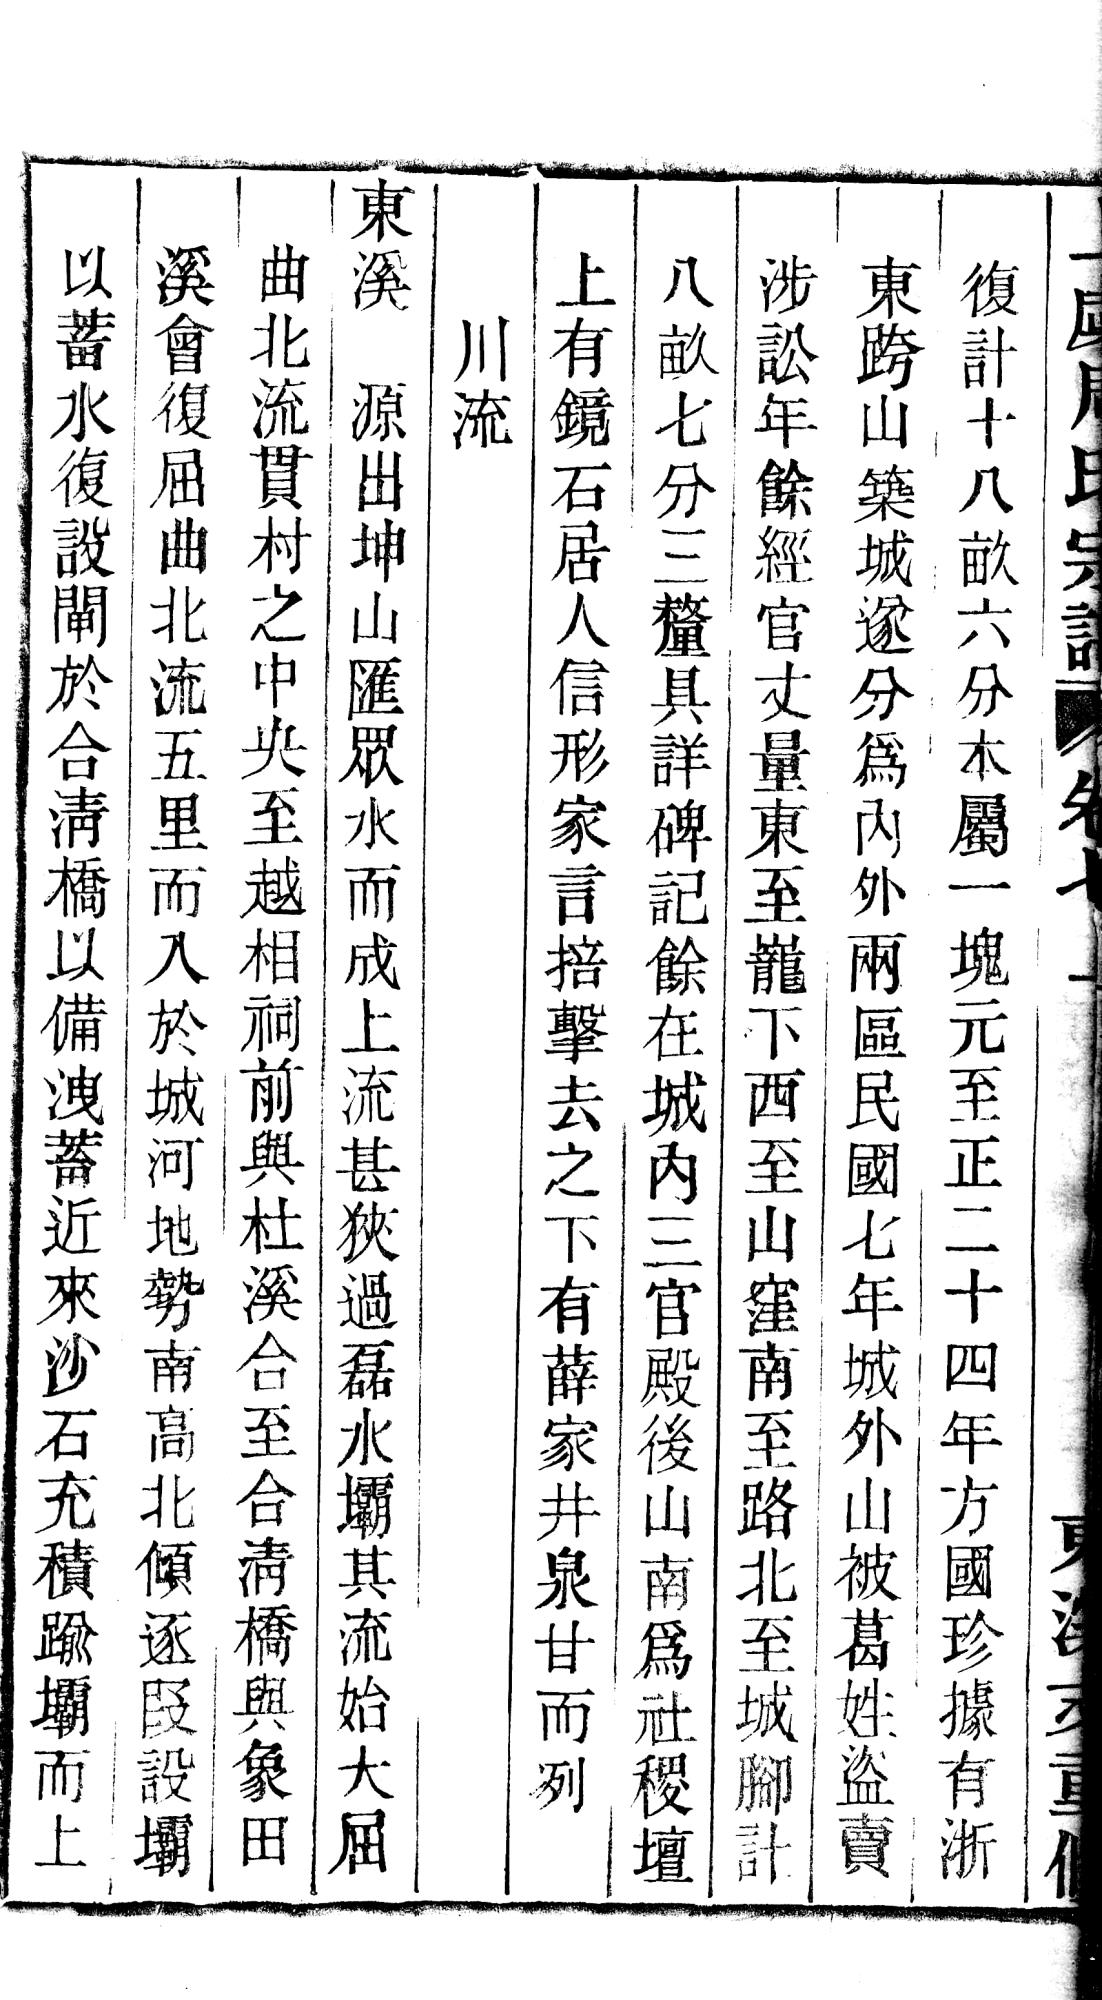 復計十八畝六分本屬一塊元至正二十四年方國珍據有浙
東跨山築城遂分爲內外兩區民國七年城外山被葛姓盜賣
涉訟年餘經官丈量東至巃下西至山窪南至路北至城腳計
八畝七分三釐具詳碑記餘在城內三官殿後山南爲社稷壇
上有鏡石居人信形家言掊擊去之下有薛家井泉甘而列
川流
東溪　源出坤山匯眾水而成上流甚狹過磊水壩其流始大屈
曲北流貫村之中央至越相祠前與杜溪合至合淸橋與象田
溪會復屈曲北流五里而入於城河地勢南高北傾逐段設壩
以蓄水復設閘於合淸橋以備洩蓄近來沙石充積踰壩而上